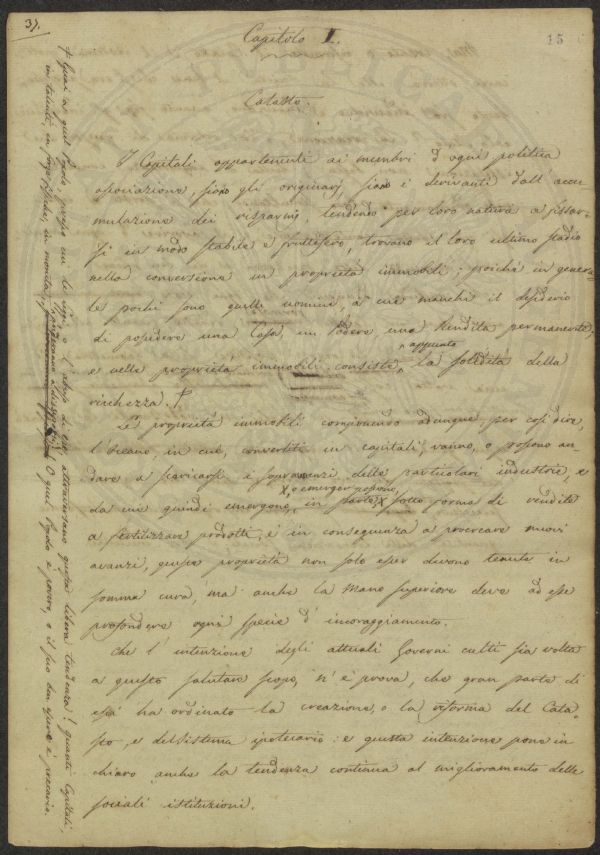 37.
15
Capitolo I.
Catasto.
I Capitali appartenenti ai membri d'ogni politica
associazione, siano gli originarj, siano i derivanti dall'accu-
mulazione dei risparmi, tendendo per loro natura a fissar-
si in modo stabile e fruttifero, trovano il loro ultimo stadio
nella conversione in proprietà immobili; poiché in genera-
le pochi sono quelli uomini, a cui manchi il desiderio
di possedere una Casa, un Podere una Rendita permanente;
e nelle proprietà immobili consiste appunto la solidità della
ricchezza. †
Le proprietà immobili componendo adunque, per così dire,
l'Oceano, in cui, convertiti in capitali, vanno, o possono an-
dare a scaricarsi i sopravanzi delle particolari industrie, e
da cui quindi emergono, X, o emerger possono, in parte X sotto forma di rendite
a fertilizzare prodotti, e in conseguenza a procreare nuovi
avanzi, queste proprietà non solo esser devono tenute in
somma cura, ma anche la Mano superiore deve ad esse
profondere ogni specie d'incoraggiamento.
Che l'intenzione degli attuali Governi culti sia volta
a questo salutare scopo, n'è prova, che gran parte di
essi ha ordinato la creazione, o la riforma del Cata-
sto, e del Sistema ipotecario: e questa intenzione pone in
chiaro anche la tendenza continua al miglioramento delle
sociali istituzioni.
† Guai a quel Popolo, presso cui le leggi, o l'abuso di esse attraversano questa libera tendenza! quanti Capitali,
in talenti, in forze fisiche, in moneta, O quel Popolo è povero, o il suo ben essere è precario.